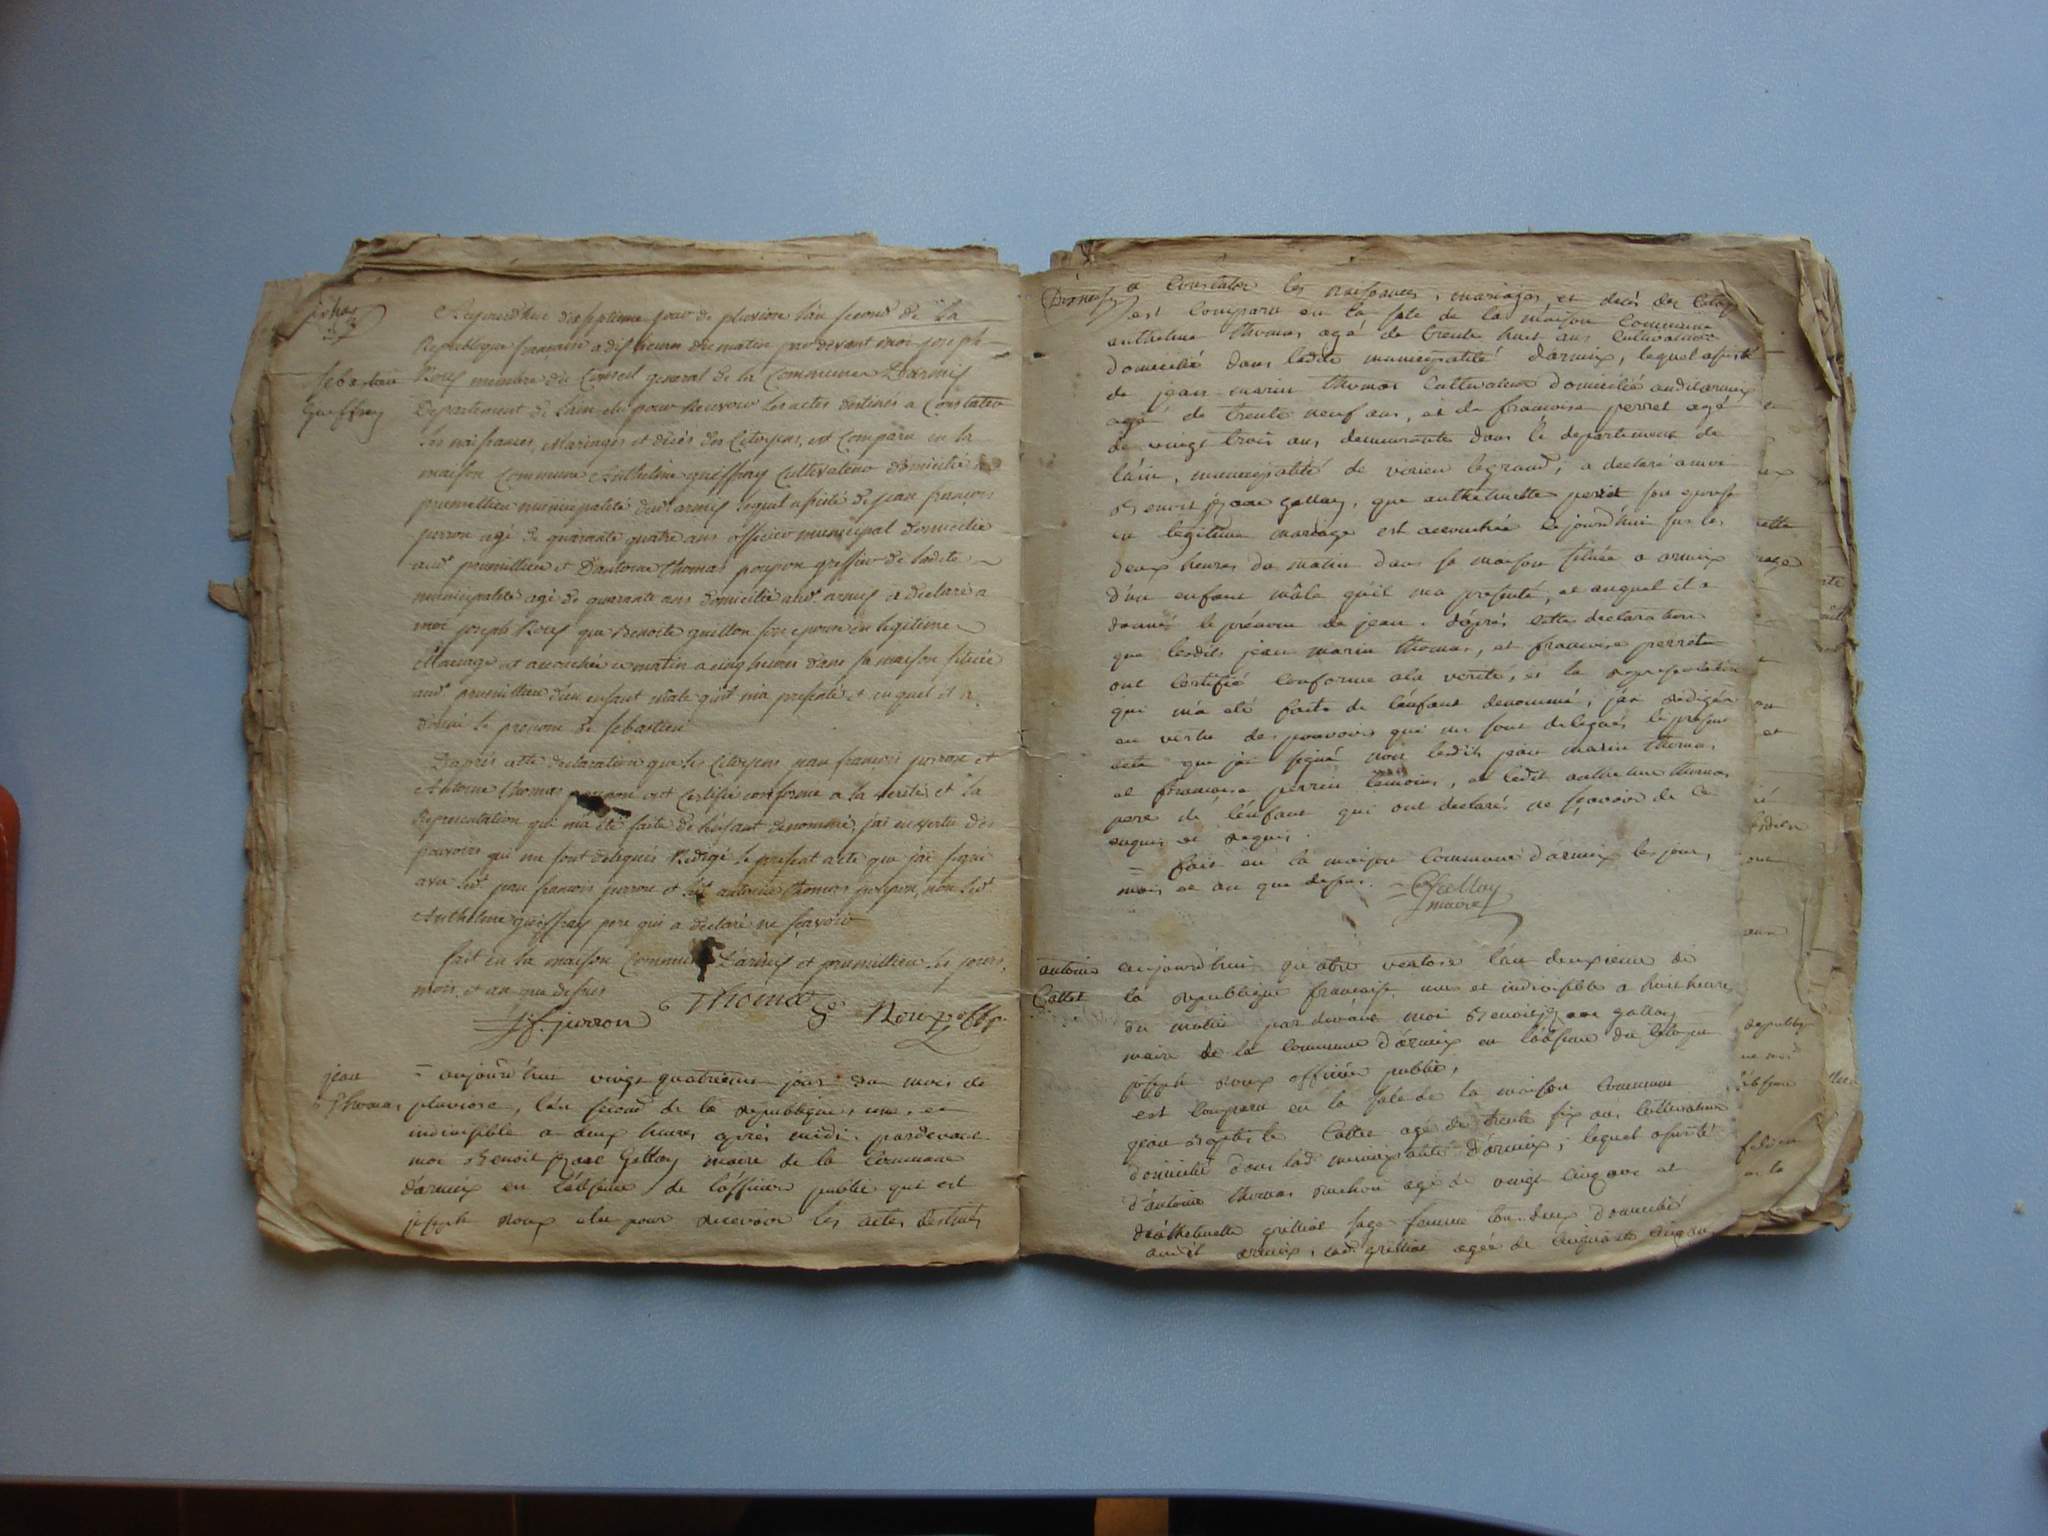 Sebastien
Gueffray
Aujourd'hui dixseptieme jour de pluviose l'an second de la
Republique francaise a dix heures du matin par devant moi joseph
Roux membre du Conseil general de la Commune D'armix
Departement de l'ain elu pour Recevoir les actes destinés a Constater
les naissances, Mariages et décès des Citoyens, est Comparu en la
maison Commune Anthelme gueffray Cultivateur domicilié a
premillieu municipalité dud armix lequel assisté de jean francois
perron agé de quarante quatre ans officier municipal domicilié
aud. premillieu et D'antoine thomas poupon greffier de ladite
municipalité agé de quarante ans domicilié aud. armix a déclaré a
moi joseph Roux que Benoite guillon son epouse en legitime
Mariage est accouchée ce matin a cinq heures dans sa maison située
aud. premillieu d'un enfant male qu'il m'a presenté et auquel il a
donné le prenom de sebastien
D'aprés cette declaration que les Citoyens jean francois perron et
Antoine thomas poupon ont Certifié conforme a la verité et la
Representation qui m'a été faite de l'enfant denommé, j'ai en vertu des
pouvoirs qui me sont delegués Redigé le present acte que j'ai signé
avec led. jean francois perron et led antoine thomas poupon, non led.
Anthelme gueffray pere qui a déclaré ne scavoir
fait en la maison Commune D'armix et premillieu les jours,
mois, et an que dessus
J f. perron Thomas Roux off p.
jean
thomas
= aujourd'hui vingt quatrieme jour du mois de
pluviose, l'an second de la république, une, et
indivisible a deux heures après midi. pardevant
moi Benoit Gallay maire de la Commune
d'armix en l'absence de l'officier public qui est
joseph roux elu pour recevoir les actes destinés
a Constater les naissances, mariages, et décés des Citoy
est Comparu en la sale de la maison Commune
anthelme thomas agé de trente huit ans Cultivateur
domicilié dans ladite municipalité d'armix, lequel assisté
de jean marin thomas Cultivateur domicilié audit armix
agé de trente neuf ans, et de francoise perret agé
de vingt trois ans demeurante dans le departement de
l'ain, municipalité de virieu legrand, a declaré a moi
Benoit Gallay, que anthelmette perret son epouse
en legitime mariage est accouchée cejourd'hui sur les
deux heures du matin dans sa maison située a armix
d'un enfant mâle qu'il ma presenté, et auquel il a
donné le prénom de jean. d'après cette declaration
que lesdits jean marin thomas, et francoise perret
ont Certifié Conforme a la vérité, et la representation
qui m'a eté faite de l'enfant denommé, j'ai redigée
en vertu des pouvoirs qui me sont delegués le present
acte que j'ai signé non lesdits jean marin thomas
et francoise perrin temoins, et ledit anthelme thomas
pere de l'enfant qui ont declarés ne sçavoir de ce
enquis et requis.
= fait en la maison Commune d'armix les jour,
mois et an que dessus. = Gallay
maire
antoine
Cattet
aujourd'hui quatre ventose l'an deuxieme de
la republique francaise une et indivisible a huit heures
du matin par devant moi Benoit gallay
maire de la Commune d'armix en l'absence du Citoyen
joseph roux officier public,
est Comparu en la sale de la maison Commune
jean Baptiste Cattet agé de trente six ans Cultivateur
domicilié dans lad. municipalité d'armix, lequel assisté
d'antoine thomas ruchon agé de vingt cinq ans et
d'anthelmette grilliat sage femme tou deux domicilié
audit armix, lad. grilliat agée de Cinquante cinq ans